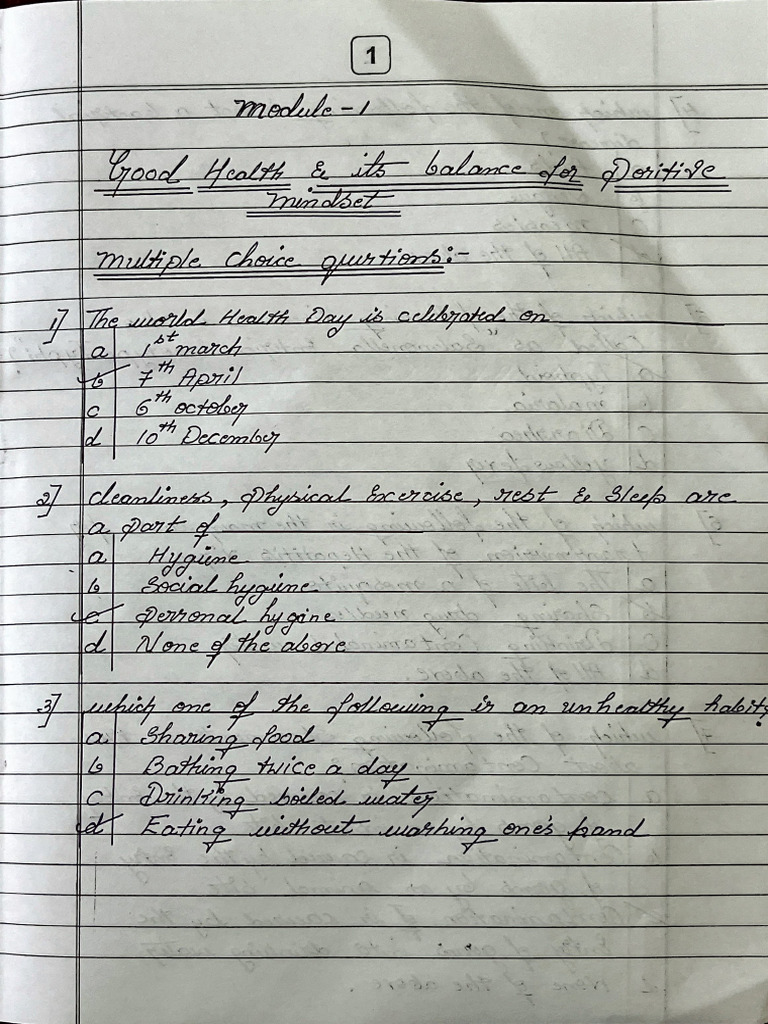 1
Module - 1
Good Health & its balance for Positive
mindset
Multiple choice questions:-
1] The world Health Day is celebrated on
a 1st march
b 7th April
c 6th october
d 10th December
2] cleanliness, Physical Exercise, rest & sleep are
a part of
a Hygiene
b Social hygiene
c personal hygine
d None of the above
3] which one of the following is an unhealthy habit?
a Sharing food
b Bathing twice a day
c Drinking boiled water
d Eating without washing one's hand